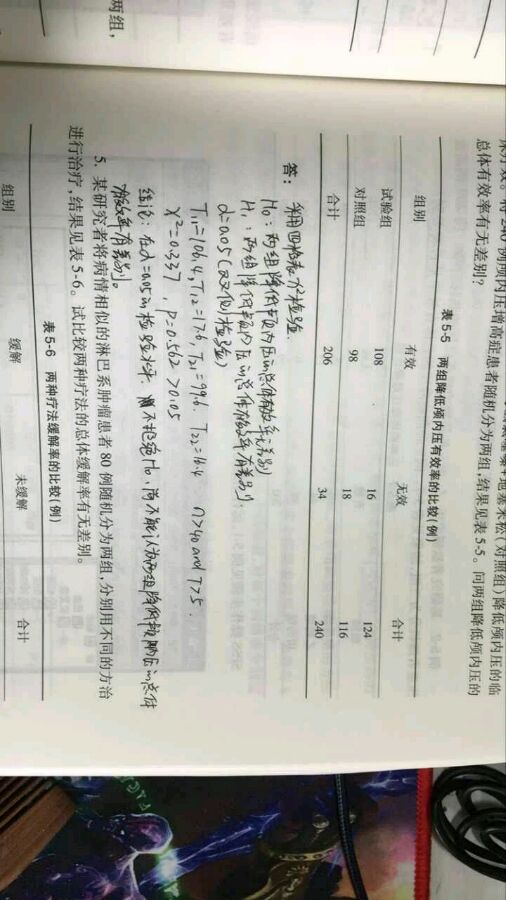 两组，
总体有效率有无差别?
表 5-5 两组降低颅内压有效率的比较(例)
组别 有效 无效 合计
试验组 108 16 124
对照组 98 18 116
合计 206 34 240
答: 采用四格表X²检验.
H₀: 两组降低颅内压的总体有效率无差别
H₁: 两组降低颅内压的总体有效率有差别.
α=0.05(双侧检验)
T₁₁=106.4, T₁₂=17.6, T₂₁=99.6. T₂₂=16.4 n>40 and T>5.
X²=0.337 , P=0.562 >0.05
结论: 在α=0.05的检验水平, 不拒绝H₀, 尚不能认为两组降低颅内压的总体
有效率有差别。
5. 某研究者将病情相似的淋巴系肿瘤患者 80 例随机分为两组,分别用不同的方治
进行治疗,结果见表 5-6。试比较两种疗法的总体缓解率有无差别。
表 5-6 两种疗法缓解率的比较(例)
组别 缓解 未缓解 合计